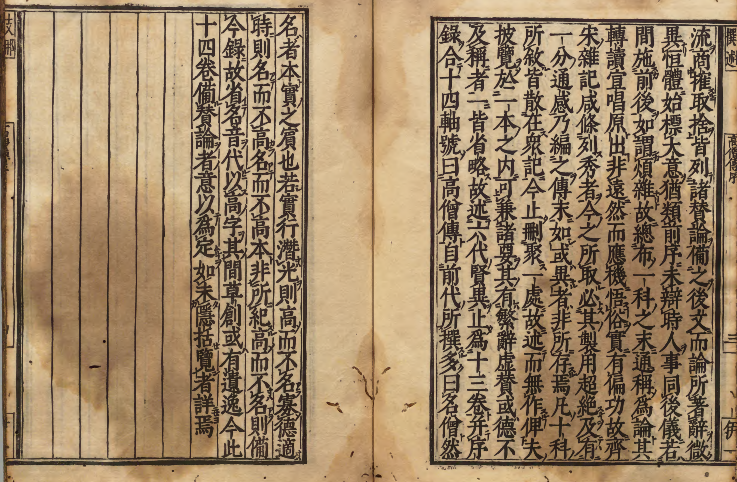 流商搉取捨皆列諸贊論備之後文而論所著辭微
異恒體始標大意猶類前序末辯時人事同後儀若
間施前後如謂煩雜故總布一科之末通稱爲論其
轉讀宣唱原出非遠然而應機悟俗實有偏功故齊
宋雜記咸條列秀者今之所取必其製用超絶及有
一分通感乃編之傳末如或異者非所存焉凡十科
所敘皆散在衆記今止刪聚一處故述而無作俾夫
披覽於一本之内可兼諸要其有繁辭虚贊或德不
及稱者一皆省略故述六代賢異止爲十三卷并序
録合十四軸號曰高僧傳自前代所撰多曰名僧然
名者本實之賓也若實行潛光則高而不名寡德適
時則名而不高名而不高本非所紀高而不名則備
今録故省名音代以高字其間草創或有遺逸今此
十四卷備贊論者意以爲定如未隱括覽者詳焉